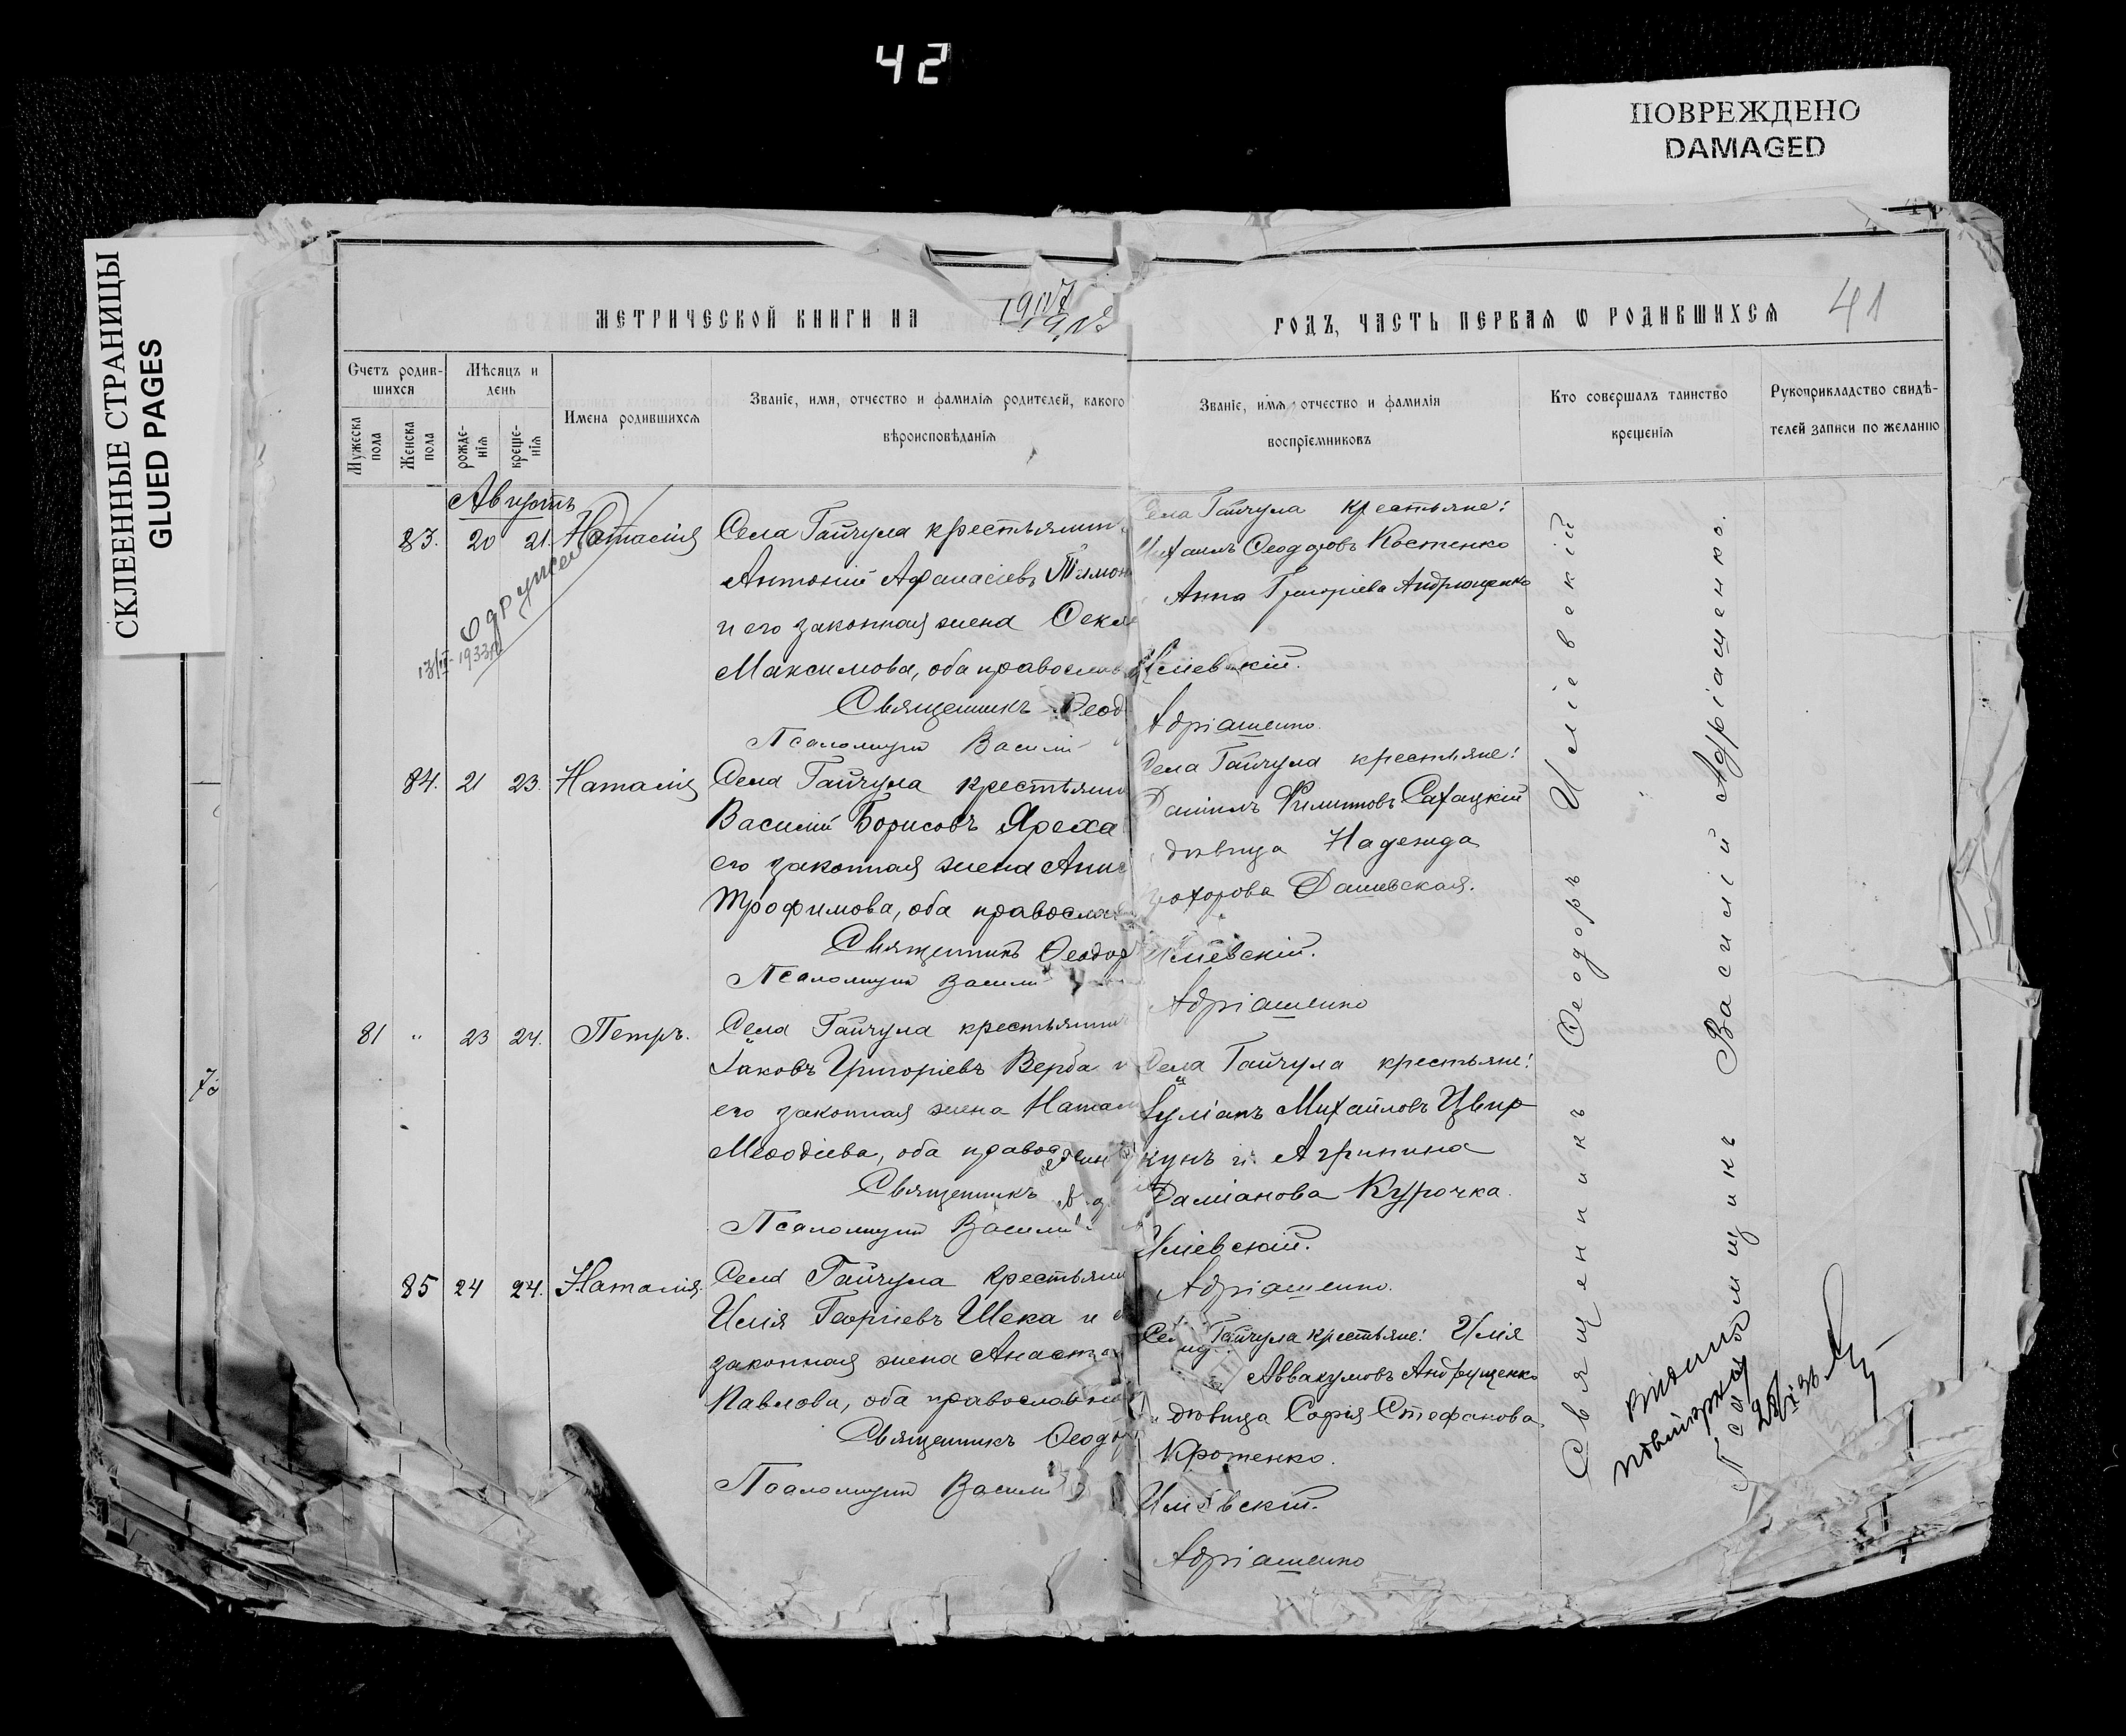 42
ПОВРЕЖДЕНО
DAMAGED
СКЛЕЕННЫЕ СТРАНИЦЫ
GLUED PAGES
МЕТРИЧЕСКОЙ КНИГИ НА 1907
ГОДЪ, ЧАСТЬ ПЕРВАЯ Ѡ РОДИВШИХСЯ
41
Счетъ родив-
шихся
Мужеска
пола
Женска
пола
Мѣсяцъ и
день
рожде-
нія
креще-
нія
Имена родившихся
Званіе, имя, отчество и фамилія родителей, какого
вѣроисповѣданія
Званіе, имя, отчество и фамилія
воспріемниковъ
Кто совершалъ таинство
крещенія
Рукоприкладство свидѣ-
телей записи по желанію
Августъ
83. 20 21. Наталія
Села Гайчула крестьянин
Антоній Афанасіевъ Тимон
и его законная жена Ѳекл
Максимова, оба православ
Священникъ Ѳеод
Псаломщик Василій
Села Гайчула крестьяне:
Михаилъ Ѳеодоровъ Костенко
Анна Григоріева Андрющенко
Иліевскій.
Адріашенко.
13/II-1933
84. 21 23. Наталія
Села Гайчула крестьянин
Василій Борисовъ Яреха
его законная жена Анис
Трофимова, оба православ
Священникъ Ѳеодор
Псаломщик Василій
Села Гайчула крестьяне:
Даніилъ Филипповъ Сахацкій
дѣвица Надежда
Прохорова Дашевская.
Иліевскій.
Адріашенко
81 " 23 24. Петръ.
Села Гайчула крестьянин
Іаковъ Григоріевъ Верба и
его законная жена Натал
Меѳодіева, оба правос
Священникъ
Псаломщик Василій
Села Гайчула крестьяне:
Іуліанъ Михайловъ Цвир
кунъ и Агрипина
Даміанова Курочка.
Иліевскій.
Адріашенко.
85 24 24. Наталія.
Села Гайчула крестьянин
Илія Георгіевъ Шека и е
законная жена Анаста
Павлова, оба православн
Священникъ Ѳеодор
Псаломщик Василій
Села Гайчула крестьяне: Илія
Аввакумовъ Андрущенко
и дѣвица Софія Стефанова
Кротенко.
Иліевскій.
Адріашенко
Священникъ Ѳеодоръ Иліевскій
Псаломщикъ Василій Адріашенко.
70